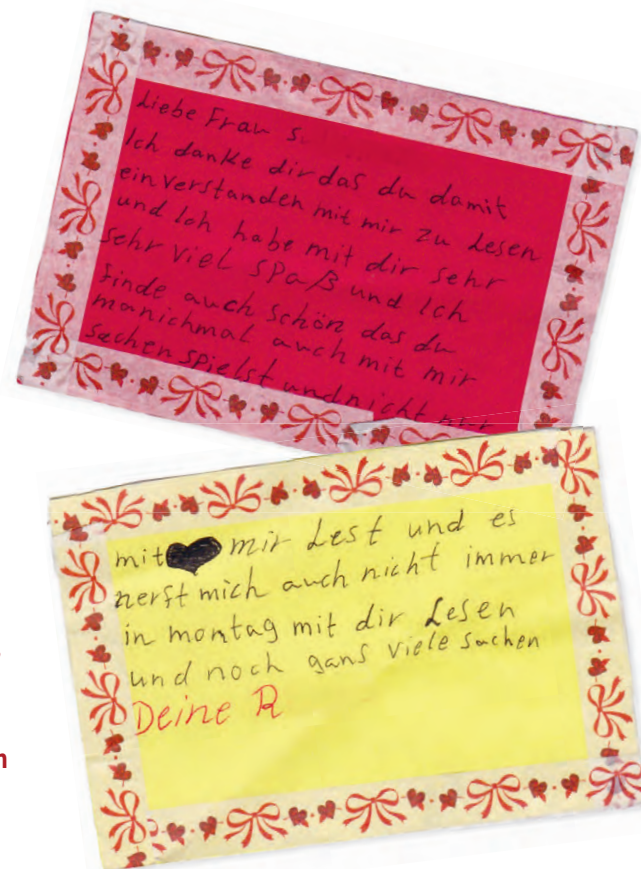 Liebe Frau S.
Ich danke dir das du damit
einverstanden mit mir zu Lesen
und Ich habe mit dir sehr
sehr viel Spaß und Ich
finde auch schön das du
manichmal auch mit mir
sachen spielst und nicht nur
mit mir Lest und es
nerft mich auch nicht immer
in montag mit dir Lesen
und noch gans viele sachen
Deine R
n